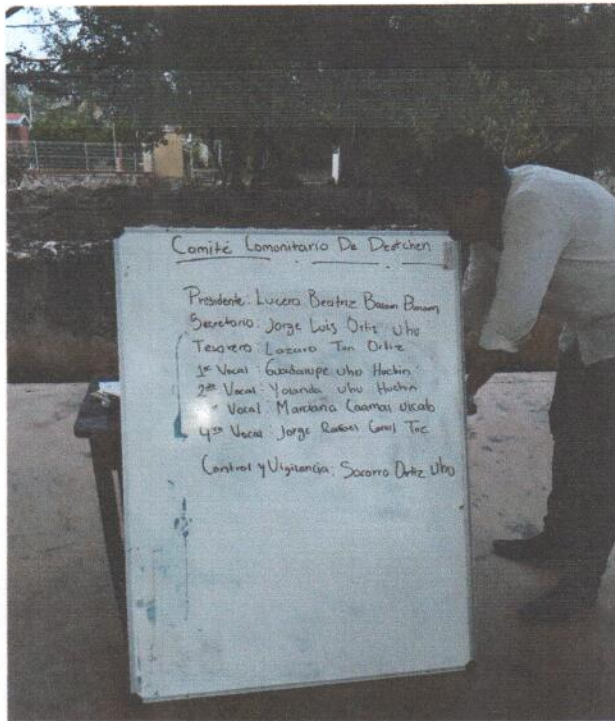 Comité Comonitario De Destchen
Presidente: Lucero Beatriz
Secretario: Jorge Luis Ortiz Uhu
Tesorero: Lazaro Tun Ortiz
1er Vocal: Guadarupe uhu Huchin
2do Vocal: Yolanda uhu Huchin
Vocal: Caamas uicab
4to Vocal: Jorge Rafael
Control y Vigilancia: Socorro Ortiz Uhu